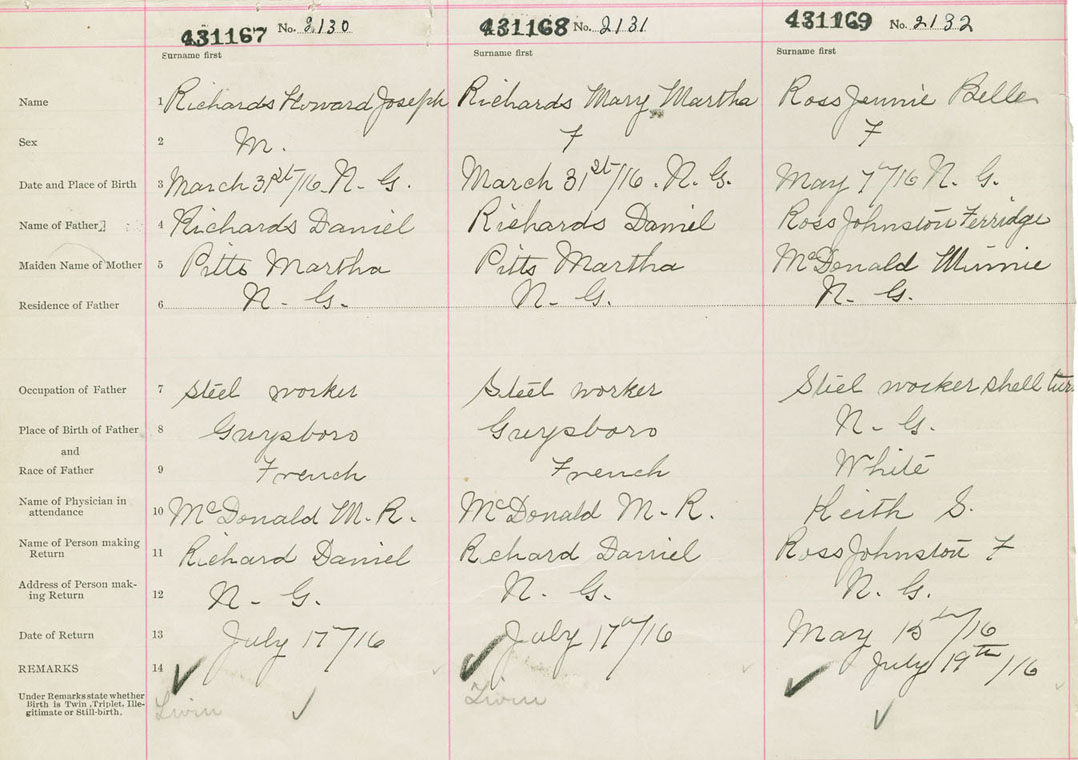 431167 No. 2130 431168 No. 2131 431169 No. 2132
Surname first Surname first Surname first
Name 1 Richards Howard Joseph Richards Mary Martha Ross Jennie Belle
Sex 2 M. F F
Date and Place of Birth 3 March 31st/16. N. G. March 31st/16. N. G. May 7"/16 N. G.
Name of Father 4 Richards Daniel Richards Daniel Ross Johnston Ferridge
Maiden Name of Mother 5 Pitts Martha Pitts Martha McDonald Minnie
Residence of Father 6 N. G. N. G. N. G.
Occupation of Father 7 Steel worker Steel worker Steel worker shell
Place of Birth of Father 8 Guysboro Guysboro N. G.
and
Race of Father 9 French French White
Name of Physician in
attendance 10 McDonald M. R. McDonald M. R. Keith S.
Name of Person making
Return 11 Richard Daniel Richard Daniel Ross Johnston F
Address of Person mak-
ing Return 12 N. G. N. G. N. G.
Date of Return 13 July 17"/16 July 17"/16 May 15th/16
REMARKS 14 July 19th/16
Under Remarks state whether
Birth is Twin, Triplet, Ille-
gitimate or Still-birth. Twin Twin